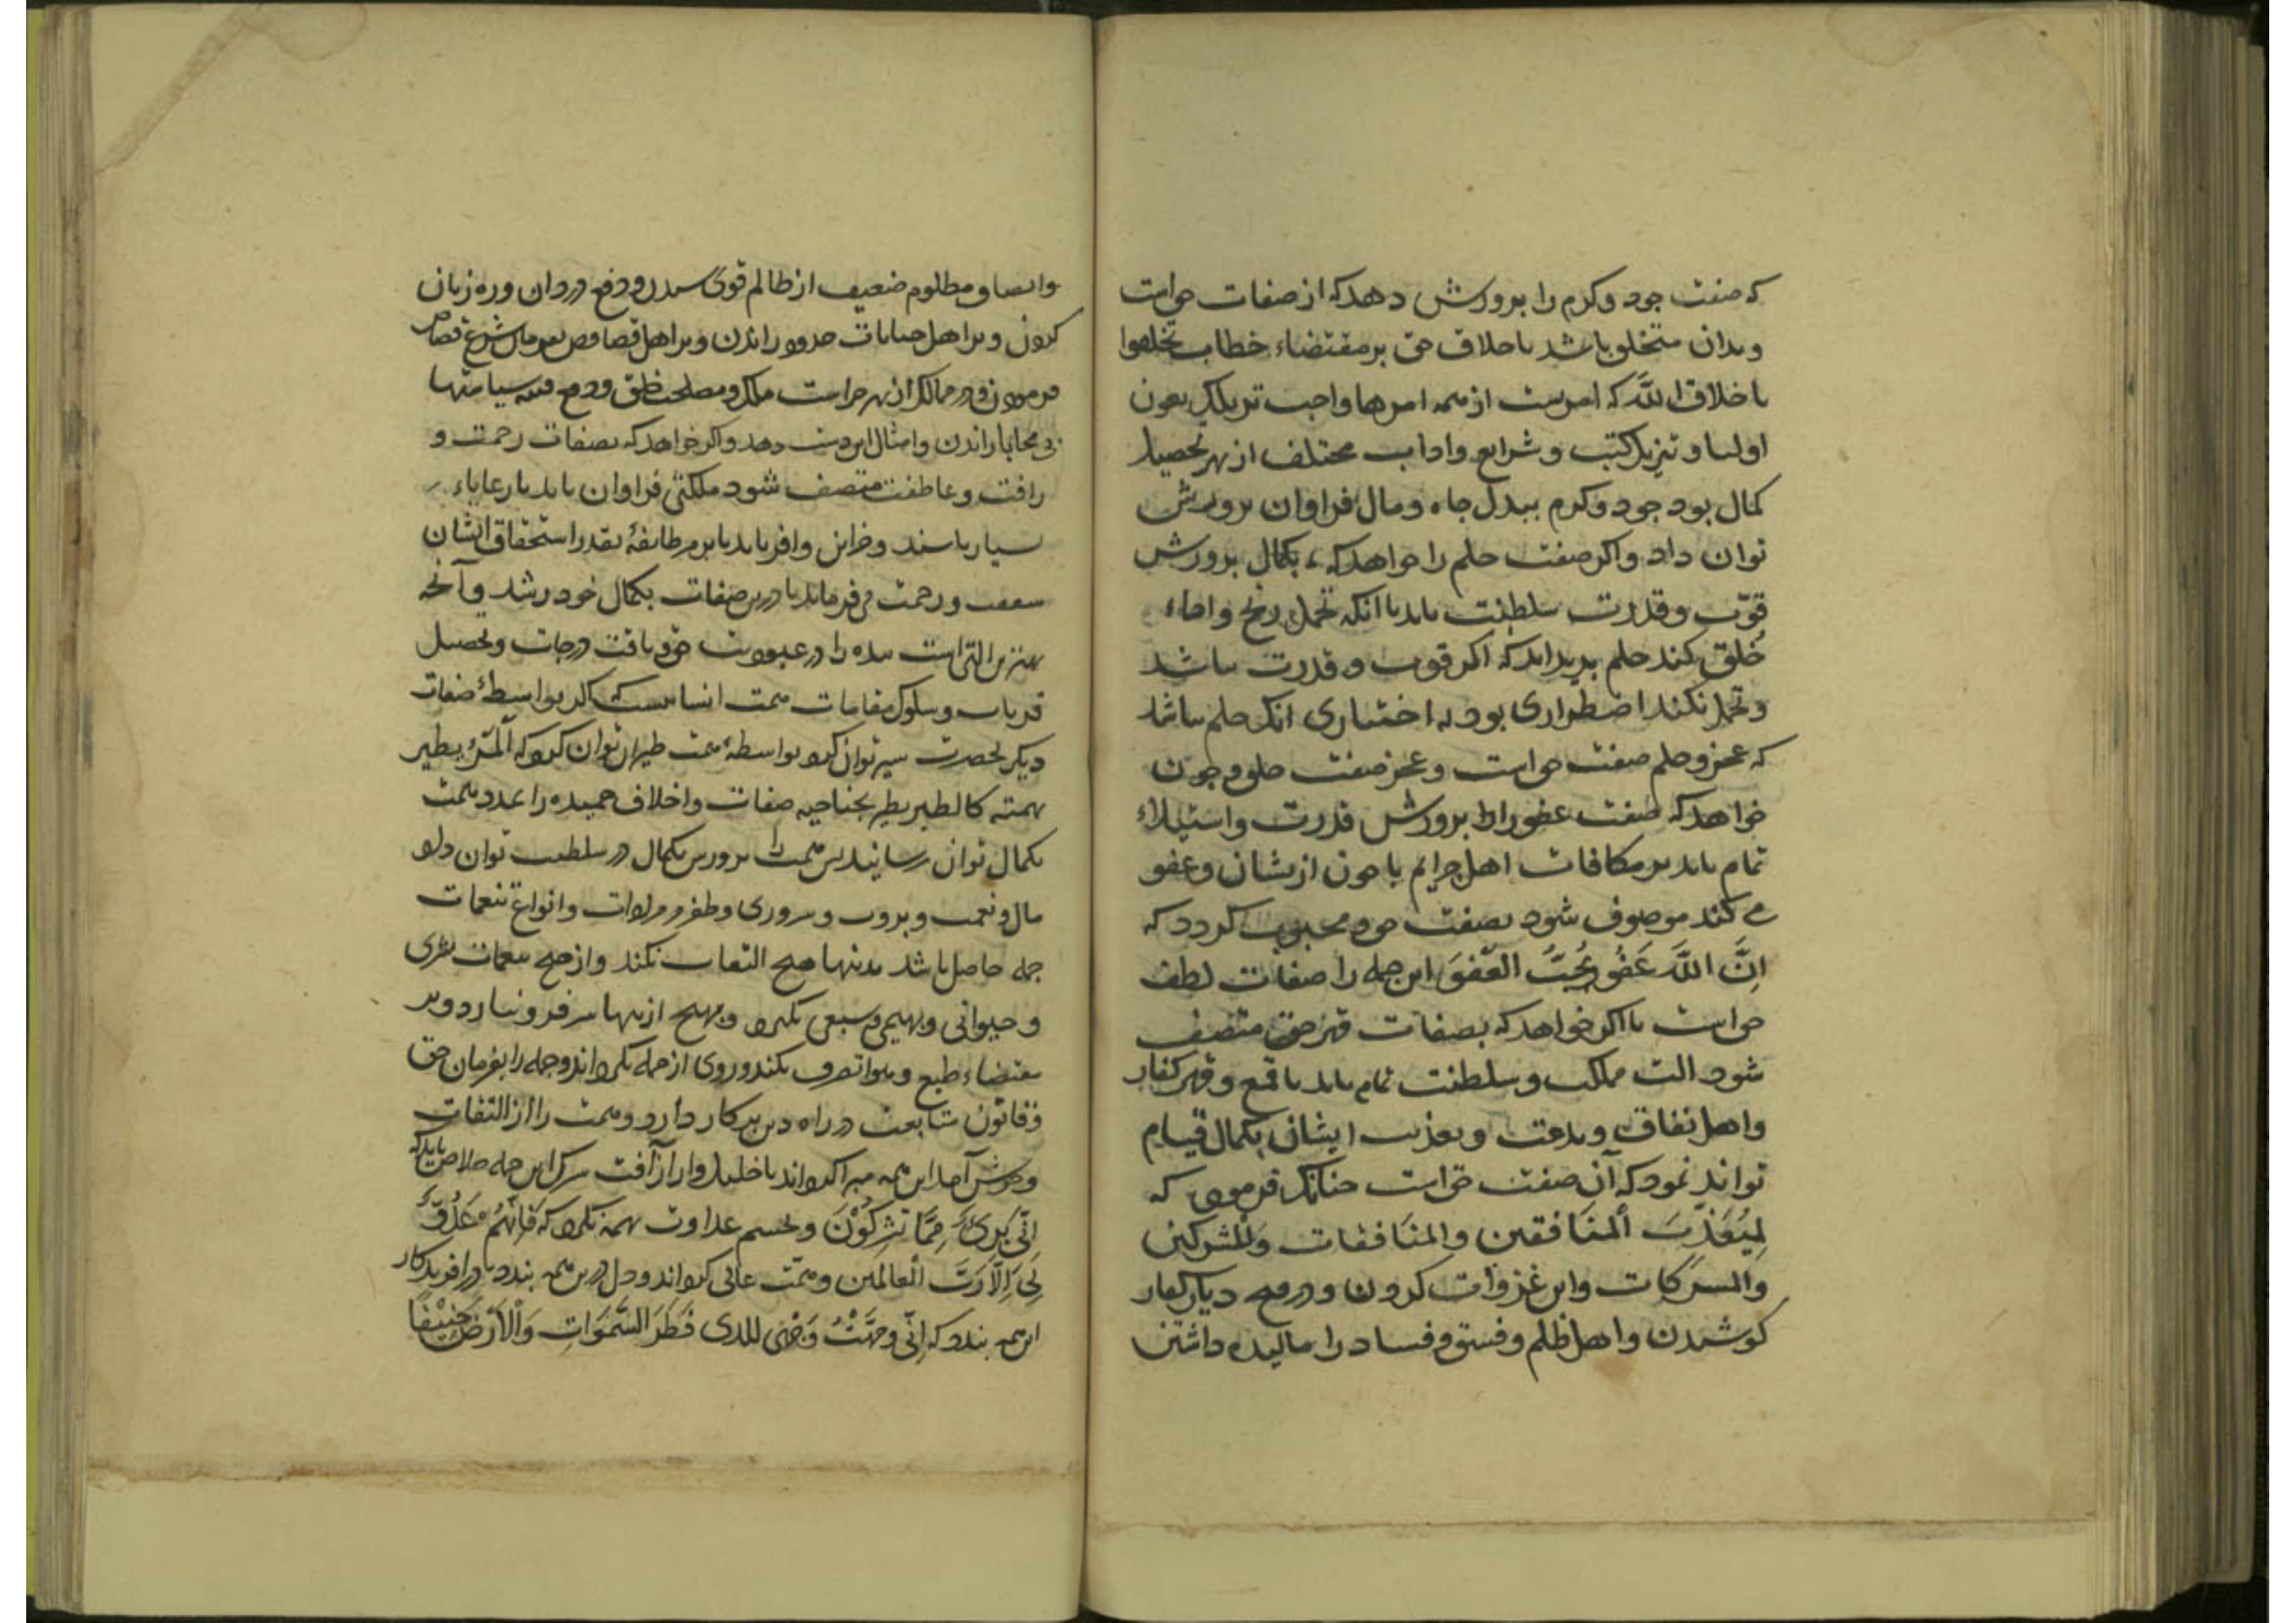 که صفت جود و کرم را پرورش دهد که از صفات حق است
و بدان متخلق باشد باخلاق حق بر مقتضاء خطاب تخلقوا
باخلاق الله که امریست از همه امرها واجب تر بلک بعون
اولیا و تنزیل کتب و شرایع و اداب مختلف از بهر تحصیل
کمال بود جود و کرم ببذل جاه و مال فراوان پرورش
توان داد و اکر صفت حلم را خواهد که بکمال پرورش
قوّت و قدرت سلطنت باید با آنکه تحمل رنج و
خُلق کند حلم پدید اید که اکر قوت و قدرت نباشد
و تحمل نکند اضطراری بود نه اختیاری انک حلم نباشد
که عجز و حلم صفت حق است و عجز صفت خلق و چون
خواهد که صفت عفو را پرورش قدرت و استیلاء
تمام باید بر مکافات اهل جرایم تا چون ازیشان عفو
می کند موصوف شود بصفت حق و محبوب کردد که
اِنَّ اللَّهَ عَفُوٌّ یُحِبُّ العَفْوَ این جمله را صفات لطف
حق است باز اکر خواهد که بصفات قهر حق متصف
شود الت مملکت و سلطنت تمام باید تا قمع و قهر کفار
و اهل نفاق و بدعت و تعذیب ایشان بکمال قیام
تواند نمود که آن صفت حق است چنانک فرمود که
لِیُعَذِّبَ المنَافقین والمنَافقات وَالمشرکین
والمسرکات و این غزوات کردن و در فتح دیار کفار
کوشیدن و اهل ظلم و فسق و فساد را مالیده داشتن
و انصاف مظلوم ضعیف از ظالم قوی ستدن و دفع دزدان و ره زنان
کردن و بر اهل جنایات حدود راندن و بر اهل قصاص بفرمان شرع قصاص
فرمودن و در ممالک از بهر حراست ملک و مصلحت خلق و دفع فتنه سیاستها
بی محابا راندن و امثال این دست دهد و اکر خواهد که بصفات رحمت و
رافت و عاطفت متصف شود مملکتی فراوان باید با رعایاء
بسیار باشند و خزاین وافر باید تا بر هر طایفهٔ بقدر استحقاق ایشان
شفقت و رحمت می فرماید تا درین صفات بکمال خود رسد و آنچه
بهترین التی است بنده را در عبودیت حق و یافت درجات و تحصیل
قربات و سلوک مقامات همت انسانیست که اکر بواسطهٔ صفات
دیکر بحضرت سیر توان کرد بواسطهٔ همت طیران توان کرد که اَلمَرءُ یطیر
بهمته کالطیر یطیر بجناحیه صفات و اخلاق حمیده را بمدد همت
بکمال توان رسانید پس همت را پرورش بکمال در سلطنت توان داد
مال و نعمت و ثروت و سروری و ظفر بر مرادات و انواع تنعمات
جمله حاصل باشد بدینها هیچ التفات نکند و از هیچ تنعمات بشری
و حیوانی و بهیمی و سبعی نکیرد و بهیچ ازینها سر فرو نیارد و بر
مقتضاء طبع و هوا تصرف نکند و روی از جمله بکرداند و جمله را بفرمان حق
و قانون متابعت در راه دین بر کار دارد و همت را از التفات
و خوش آمد این همه مبرا کرداند تا خلیل وار از آفت شرک این جمله خلاص یابد که
اِنّی بَریءٌ مِمَّا تُشرِکُوْنَ و بچشم عداوت بهمه نکرد که فَاِنَّهُمْ عَدُوٌّ
لِی اِلَّا رَبَّ العالَمین و همّت عالی کرداند و دل درین همه نبندد تا در افریدکار
این همه بندد که اِنّی وَجَّهْتُ وَجْهِیَ للذی فَطَرَ السَّمَوَاتِ وَالْاَرْضَ حَنِیْفًا